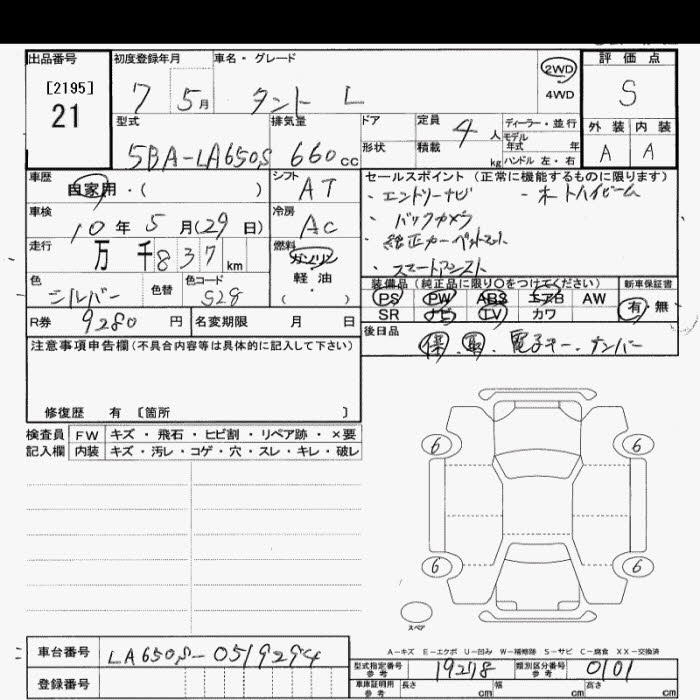 出品番号 [2195] 21
初度登録年月 7 5月
車名・グレード タント L
2WD 4WD
評価点 S
外装 内装 A A
型式 5BA-LA650S
排気量 660cc
ドア 形状
定員 4人
積載 kg
ディーラー・並行
モデル年式 年
ハンドル 左・右
車歴 自家用・( )
シフト AT
車検 10年5月(29日)
冷房 AC
走行 万 千 837 km
燃料 ガソリン 軽油 ( )
色 シルバー
色替
色コード S28
R券 9280円
名変期限 月 日
セールスポイント (正常に機能するものに限ります)
・エントリーナビ ・オートハイビーム
・バックカメラ
・純正カーペットマット
・スマートアシスト
装備品(純正品に限り○をつけてください)
PS PW ABS エアB AW
SR ナビ TV カワ
新車保証書 有・無
後日品 保、取、電子キー、ナンバー
注意事項申告欄(不具合内容等は具体的に記入して下さい)
修復歴 有 〔箇所 〕
検査員記入欄
FW キズ・飛石・ヒビ割・リペア跡・×要
内装 キズ・汚レ・コゲ・穴・スレ・キレ・破レ
6 6
6 6
スペア
A-キズ E-エクボ U-凹み W-補修跡 S-サビ C-腐食 XX-交換済
車台番号 LA650S-0519294
登録番号
型式指定番号 参考 19218
類別区分番号 参考 0101
車庫証明用 参考 長さ cm 幅 cm 高さ cm